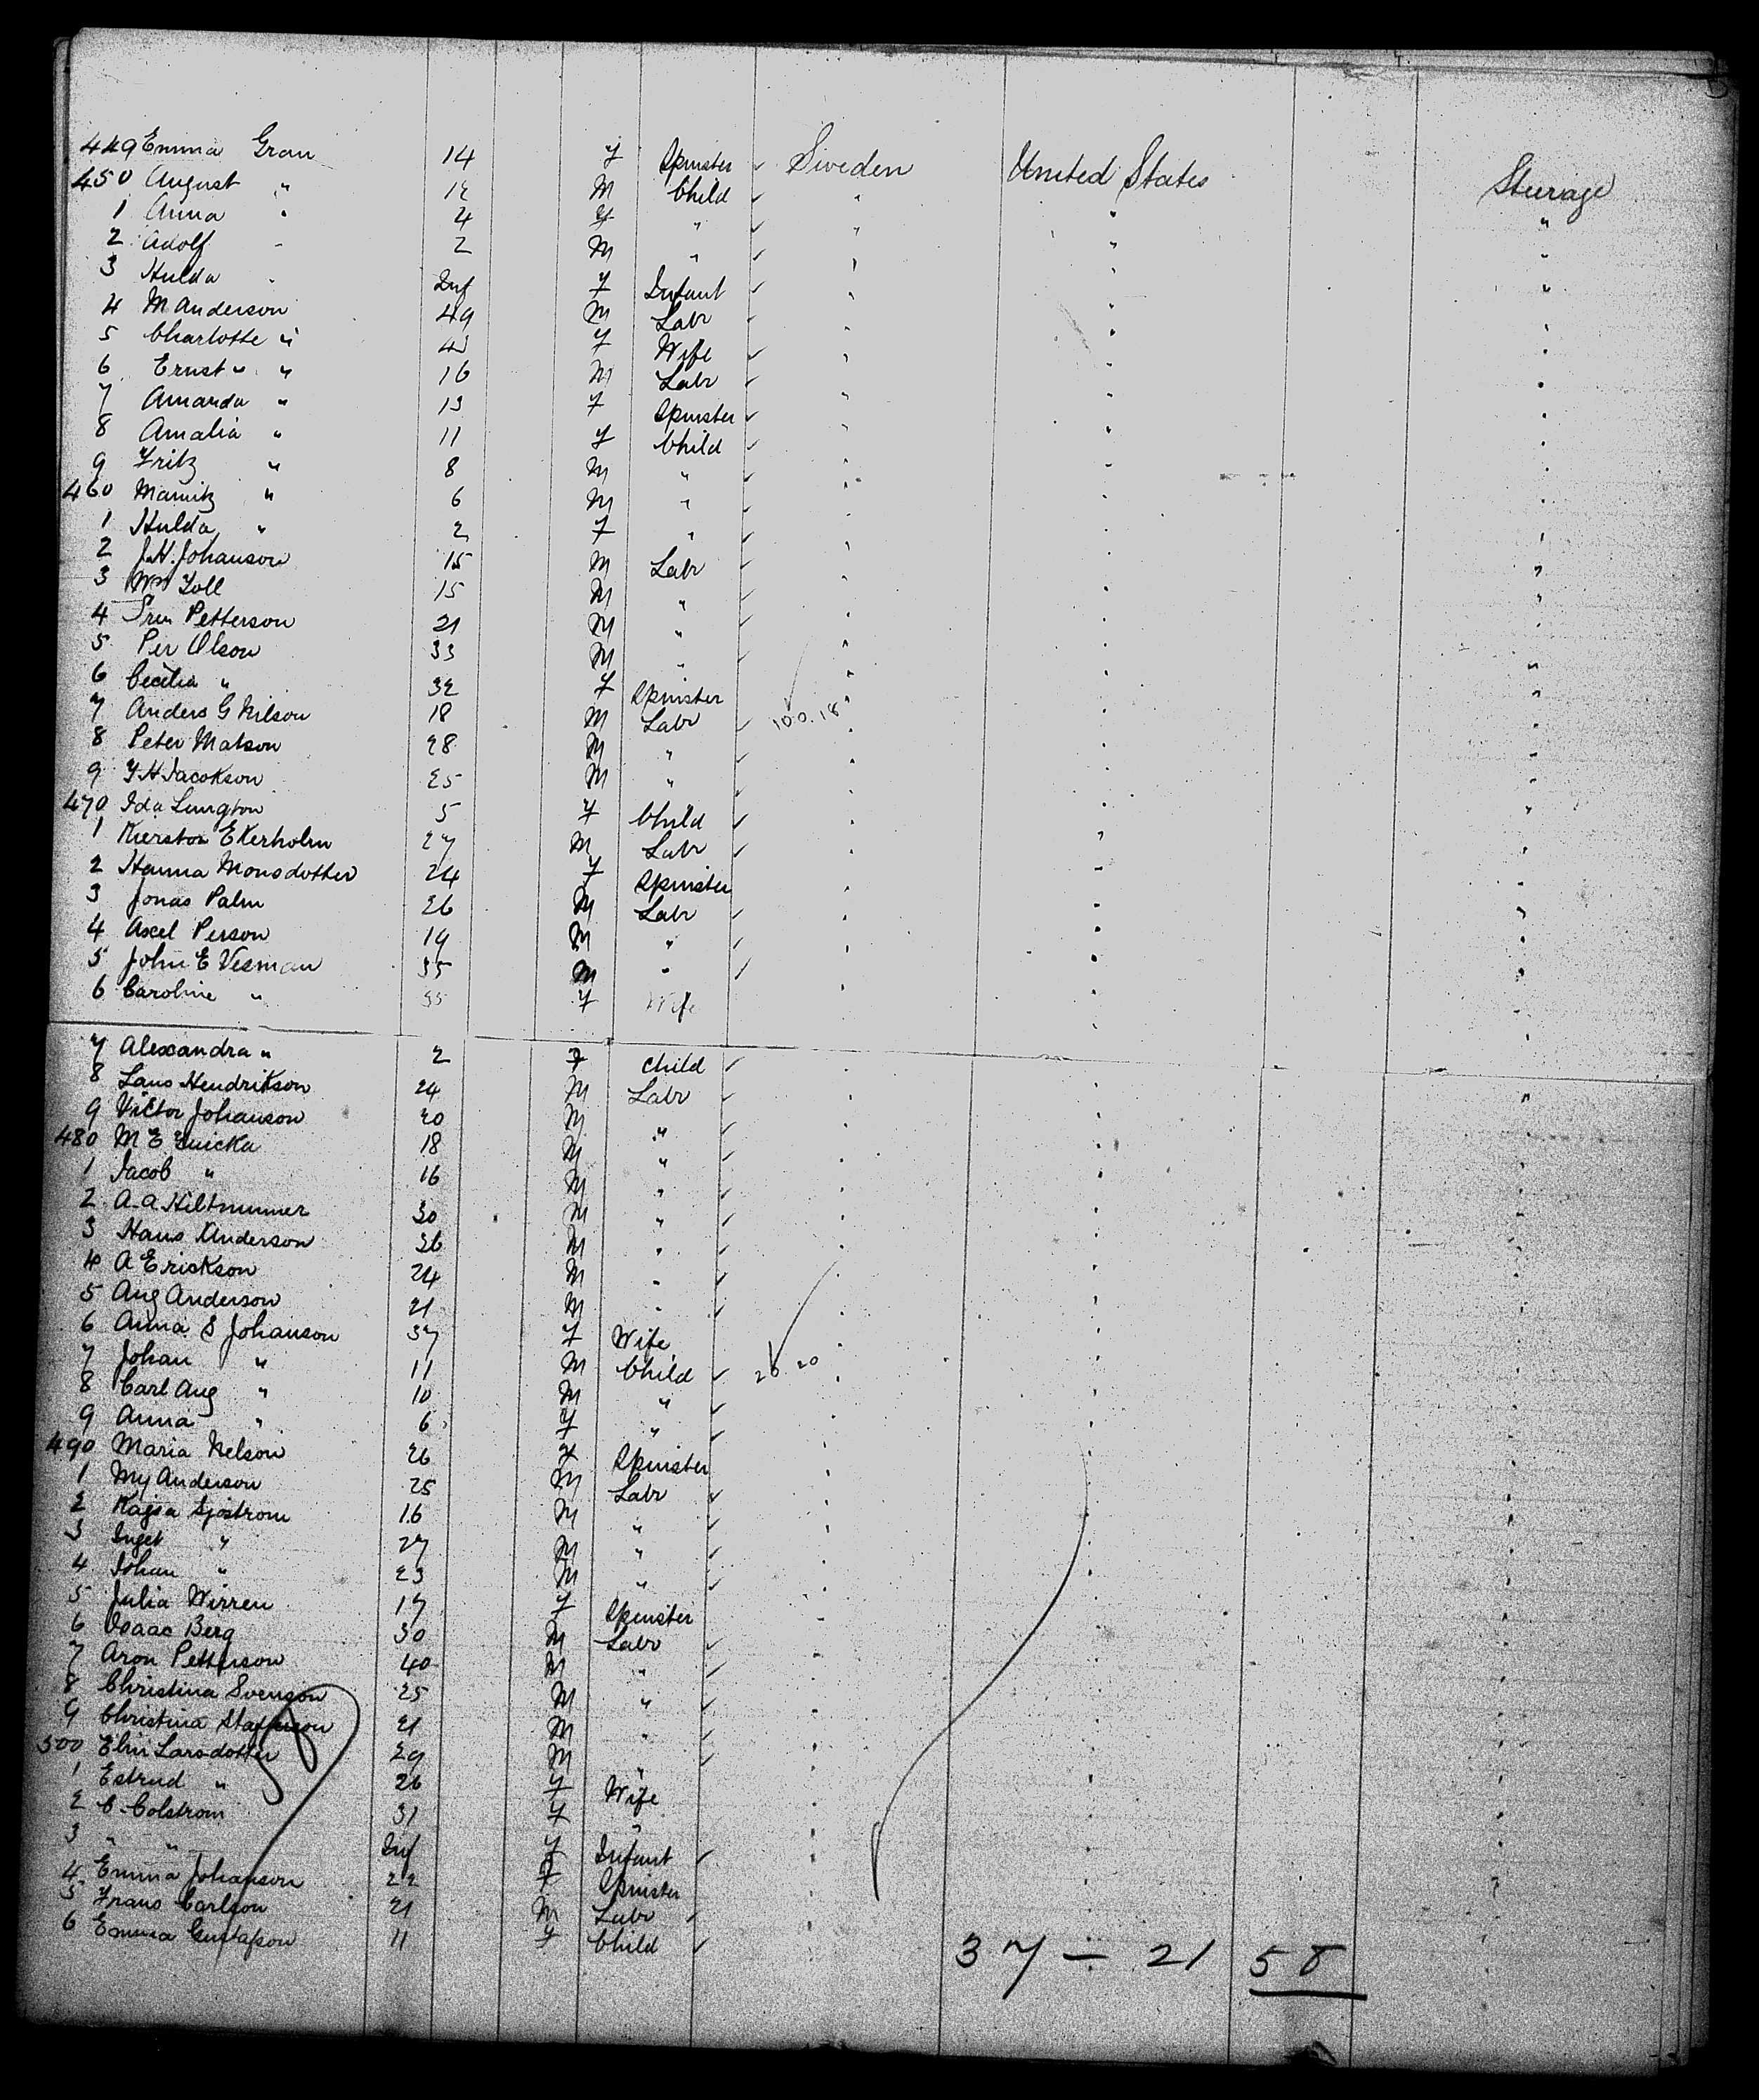 449 Emma Gran 14 F Spinster Sweden United States Steerage
450 August " 12 M Child " " "
1 Anna " 4 F " " " "
2 Adolf " 2 M " " " "
3 Hulda " Inf F Infant " " "
4 M Anderson 49 M Labr " " "
5 Charlotte " 43 F Wife " " "
6 Ernst " " 16 M Labr " " "
7 Amanda " 13 F Spinster " " "
8 Amalia " 11 F Child " " "
9 Fritz " 8 M " " " "
460 " 6 M " " " "
1 Hulda " 2 F " " " "
2 J.H. Johanson 15 M Labr " " "
3 Wm 15 M " " " "
4 Petterson 21 M " " " "
5 Per Olson 33 M " " " "
6 Cecilia " 32 F Spinster " " "
7 Anders G Nilson 18 M Labr 100.18 " " "
8 Peter Matson 28 M " " " "
9 F H Jacokson 25 M " " " "
470 Ida 5 F Child " " "
1 Kerston Ekerholm 27 M Labr " " "
2 Hanna Monsdotter 24 F Spinster " " "
3 Jonas Palm 26 M Labr " " "
4 Axel Person 19 M " " " "
5 John E Vesman 35 M " " " "
6 Caroline " 35 F Wife " " "
7 Alexandra " 2 F Child " " "
8 Lans Hendrikson 24 M Labr " " "
9 Victor Johanson 20 M " " " "
480 M E 18 M " " " "
1 Jacob " 16 M " " " "
2 A.A. 30 M " " " "
3 Hans Anderson 36 M " " " "
4 A Erickson 24 M " " " "
5 Aug Anderson 21 M " " " "
6 Anna S Johanson 37 F Wife " " "
7 Johan " 11 M Child 20 " " "
8 Carl Aug " 10 M " " " "
9 Anna " 6 F " " " "
490 Maria Nelson 26 F Spinster " " "
1 My Anderson 25 M Labr " " "
2 Kajsa Sjostrom 16 M " " " "
3 Inget " 27 M " " " "
4 Johan " 23 M " " " "
5 Julia Wirren 17 F Spinster " " "
6 Isaac Berg 30 M Labr " " "
7 Aron Petterson 40 M " " " "
8 Christina Svenson 25 M " " " "
9 Christina 21 M " " " "
500 Elin Larsdotter 29 M " " " "
1 Estrud " 26 F Wife " " "
2 C. Colstrom 31 F " " " "
3 " " Inf F Infant " " "
4 Emma Johanson 22 F Spinster " " "
5 Frans Carlson 21 M Labr " " "
6 Emma Gustafson 11 F Child " " "
37 — 21 58